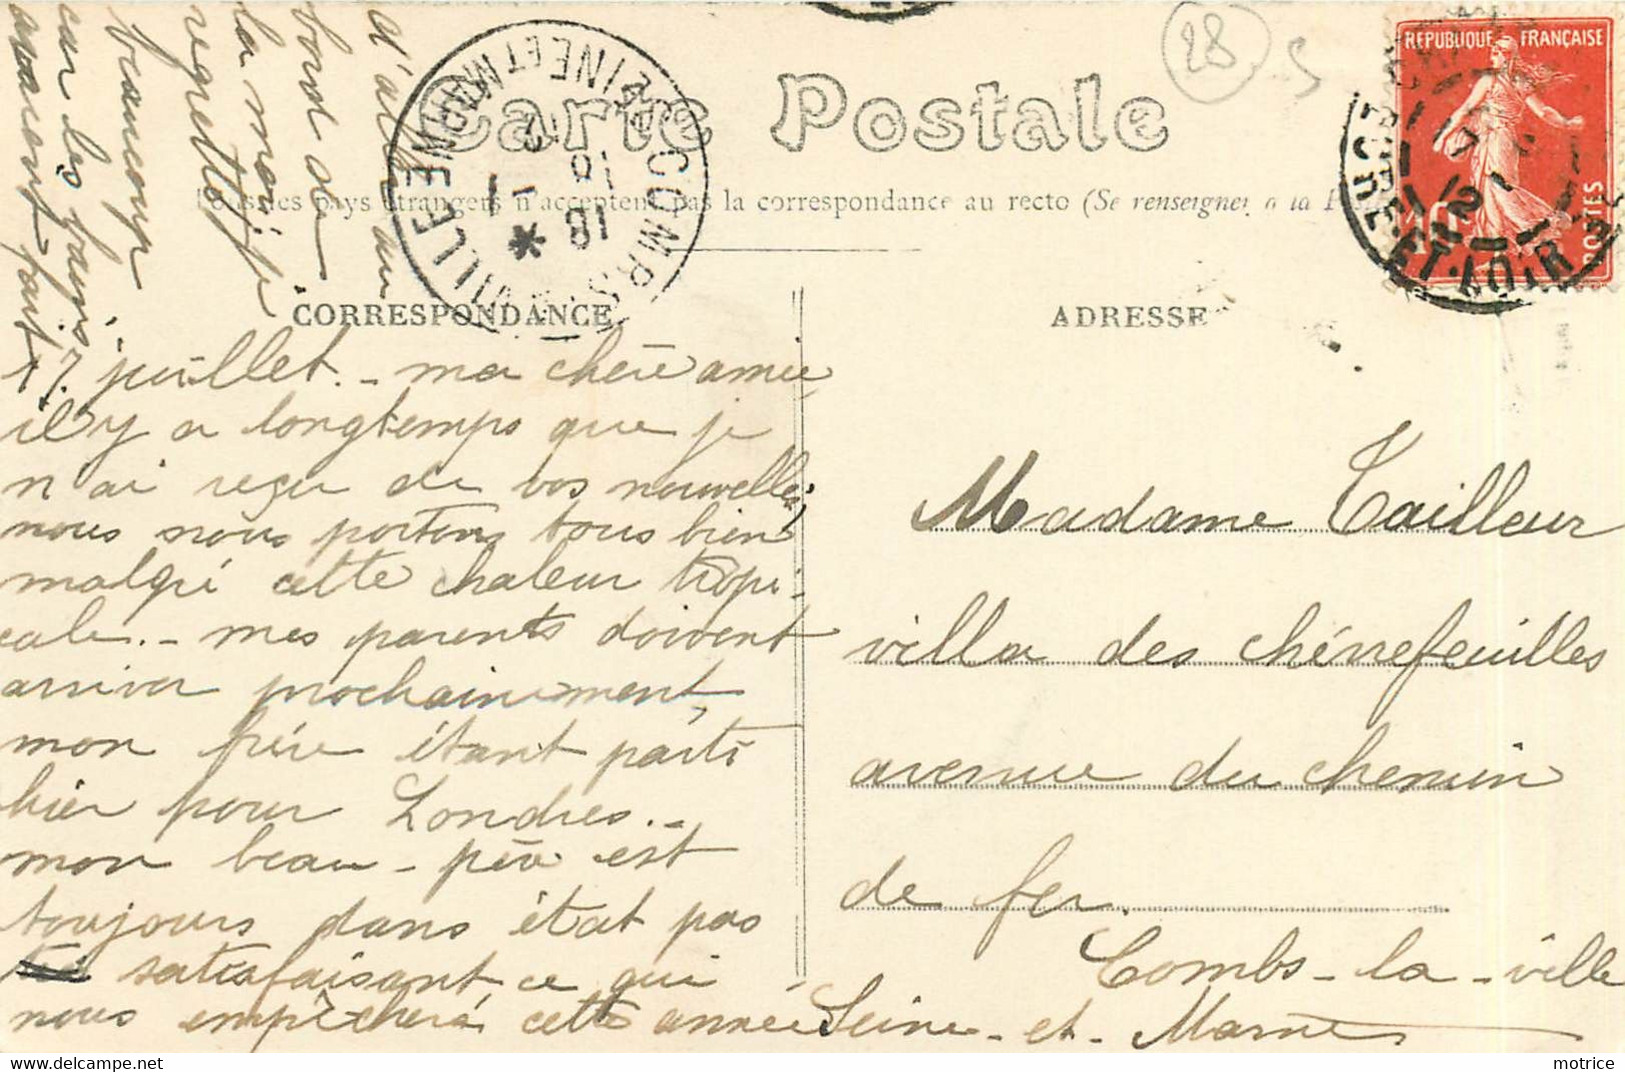 28
RÉPUBLIQUE FRANÇAISE
POSTES
EURE-ET-LOIR
COMBS-LA-VILLE
SEINE ET MARNE
18
Carte Postale
Tous les pays étrangers n'acceptent pas la correspondance au recto (Se renseigner à la
CORRESPONDANCE
ADRESSE
17 juillet. - ma chère amie,
il y a longtemps que je
n'ai reçu de vos nouvelles,
nous nous portons tous bien
malgré cette chaleur tropi-
cale. - mes parents doivent
arriver prochainement,
mon frère étant parti
hier pour Londres. -
mon beau-père est
toujours dans état pas
satisfaisant, ce qui
nous empêchera cette année
d'aller au
bord de
la mer, je
regrette
beaucoup
car les bains
avaient fait
Madame Tailleur
villa des chèvrefeuilles
avenue du chemin
de fer.
Combs-la-ville
Seine-et-Marne
motrice